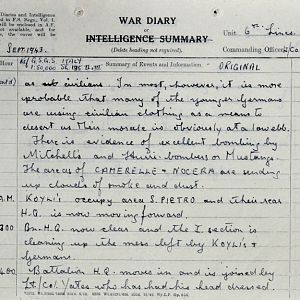 WAR DIARY
or
INTELLIGENCE SUMMARY
(Delete heading not required).
Diaries and Intelligence
in F.S. Regs., Vol. I.
be enclosed in A.F.
and for
the cover will be
Unit 6th Lincs
Commanding Officer Lt/Co
SEPT. 1943.
Ref G.S.G.S. ITALY
1:50,000
Hour
Summary of Events and Information
ORIGINAL
as civilians. In most, however, it is more
probable that many of the younger Germans
are using civilian clothing as a means to
desert as their morale is obviously at a low ebb.
There is evidence of excellent bombing by
Mitchells and their bombers or Mustangs.
The areas of CAMERELLE & NOCERA are sending
up clouds of smoke and dust.
KOYLI's occupy area S. PIETRO and their rear
H.Q. is now moving forward.
Bn. H.Q. now clear and the I. section is
cleaning up the mess left by KOYLI's &
Germans.
Battalion H.Q. moves in and is joined by
Lt. Col. Yates who has had his head dressed.